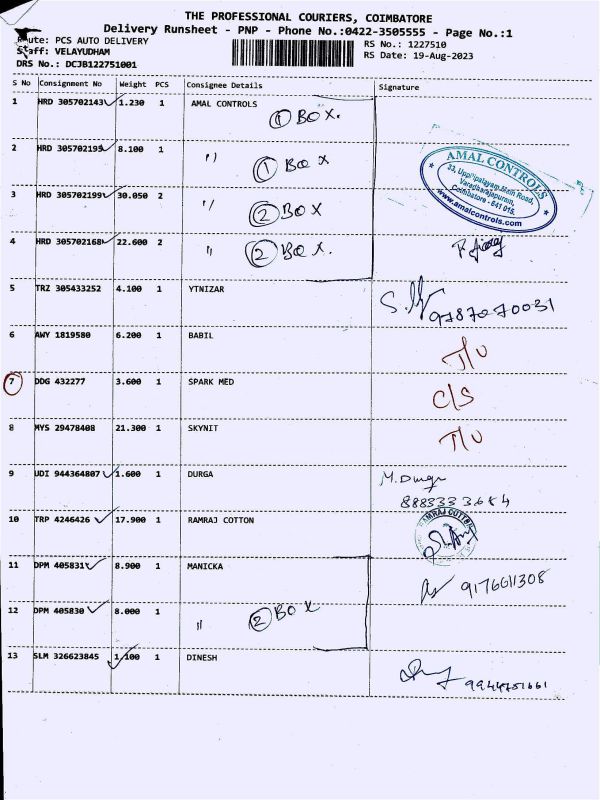 THE PROFESSIONAL COURIERS, COIMBATORE
Delivery Runsheet - PNP - Phone No.:0422-3505555 - Page No.:1
Route: PCS AUTO DELIVERY
RS No.: 1227510
Staff: VELAYUDHAM
RS Date: 19-Aug-2023
DRS No.: DCJB122751001
S No Consignment No Weight PCS Consignee Details Signature
1 HRD 305702143 1.230 1 AMAL CONTROLS
① BOX.
2 HRD 305702195 8.100 1 " ① BOX
3 HRD 305702199 30.050 2 " ② BOX
4 HRD 305702168 22.600 2 " ② BOX.
AMAL CONTROLS
33, Uppilipalayam Main Road,
Varadharajapuram,
Coimbatore - 641 015.
www.amalcontrols.com
5 TRZ 305433252 4.100 1 YTNIZAR
9787070031
6 AWY 1819580 6.200 1 BABIL T/U
7 DDG 432277 3.600 1 SPARK MED C/S
8 MYS 29478408 21.300 1 SKYNIT T/U
9 UDI 944364807 1.600 1 DURGA M. Durga
888333 3684
10 TRP 4246426 17.900 1 RAMRAJ COTTON
RAMRAJ COTTON
11 DPM 405831 8.900 1 MANICKA
9176611308
12 DPM 405830 8.000 1 " ② BOX
13 SLM 326623845 1.100 1 DINESH
9944751661